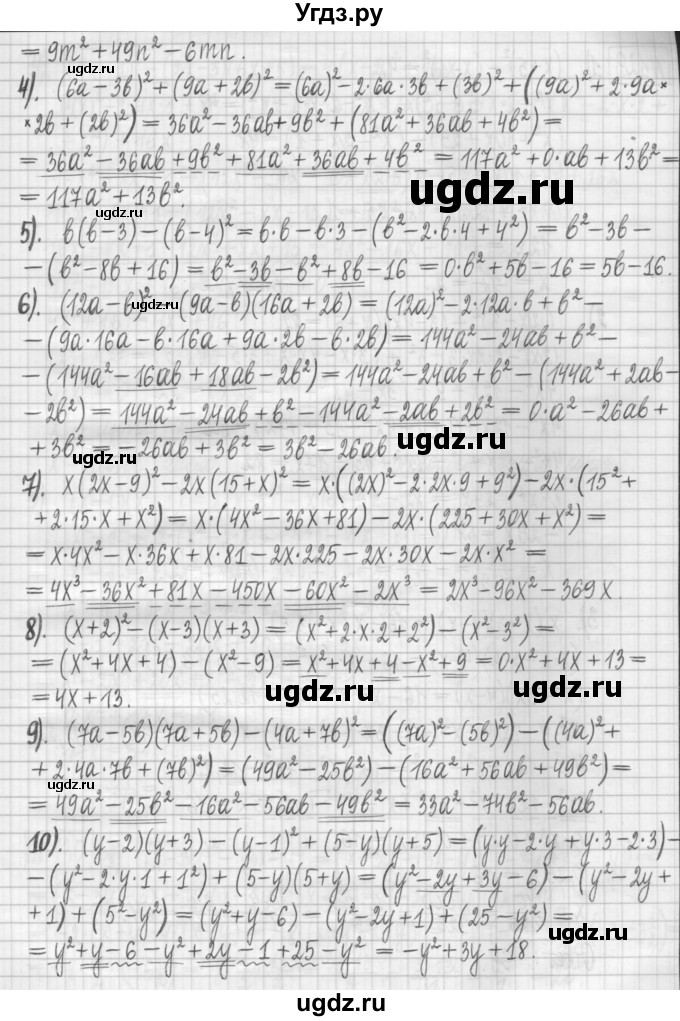 Угдз.ру
= 9m² + 49n² − 6mn.
4). (6a − 3в)² + (9a + 2в)² = (6a)² − 2·6a·3в + (3в)² + ((9a)² + 2·9a×
×2в + (2в)²) = 36a² − 36aв + 9в² + (81a² + 36aв + 4в²) =
= 36a² − 36aв + 9в² + 81a² + 36aв + 4в² = 117a² + 0·aв + 13в² =
= 117a² + 13в².
ugdz.ru
ugdz.ru
5). в(в−3) − (в−4)² = в·в − в·3 − (в² − 2·в·4 + 4²) = в² − 3в −
− (в² − 8в + 16) = в² − 3в − в² + 8в − 16 = 0·в² + 5в − 16 = 5в − 16.
ugdz.ru
6). (12a − в)² − (9a − в)(16a + 2в) = (12a)² − 2·12a·в + в² −
− (9a·16a − в·16a + 9a·2в − в·2в) = 144a² − 24aв + в² −
ugdz.ru
− (144a² − 16aв + 18aв − 2в²) = 144a² − 24aв + в² − (144a² + 2aв −
− 2в²) = 144a² − 24aв + в² − 144a² − 2aв + 2в² = 0·a² − 26aв +
+ 3в² = −26aв + 3в² = 3в² − 26aв.
ugdz.ru
7). x(2x−9)² − 2x(15+x)² = x·((2x)² − 2·2x·9 + 9²) − 2x·(15² +
+ 2·15·x + x²) = x·(4x² − 36x + 81) − 2x·(225 + 30x + x²) =
ugdz.ru
= x·4x² − x·36x + x·81 − 2x·225 − 2x·30x − 2x·x² =
= 4x³ − 36x² + 81x − 450x − 60x² − 2x³ = 2x³ − 96x² − 369x.
ugdz.ru
8). (x+2)² − (x−3)(x+3) = (x² + 2·x·2 + 2²) − (x² − 3²) =
= (x² + 4x + 4) − (x² − 9) = x² + 4x + 4 − x² + 9 = 0·x² + 4x + 13 =
= 4x + 13.
ugdz.ru
ugdz.ru
9). (7a − 5в)(7a + 5в) − (4a + 7в)² = ((7a)² − (5в)²) − ((4a)² +
+ 2·4a·7в + (7в)²) = (49a² − 25в²) − (16a² + 56aв + 49в²) =
ugdz.ru
= 49a² − 25в² − 16a² − 56aв − 49в² = 33a² − 74в² − 56aв.
10). (y−2)(y+3) − (y−1)² + (5−y)(y+5) = (y·y − 2·y + y·3 − 2·3) −
− (y² − 2·y·1 + 1²) + (5−y)(5+y) = (y² − 2y + 3y − 6) − (y² − 2y +
ugdz.ru
+ 1) + (5² − y²) = (y² + y − 6) − (y² − 2y + 1) + (25 − y²) =
ugdz.ru
= y² + y − 6 − y² + 2y − 1 + 25 − y² = −y² + 3y + 18.
ugdz.ru
ugdz.ru